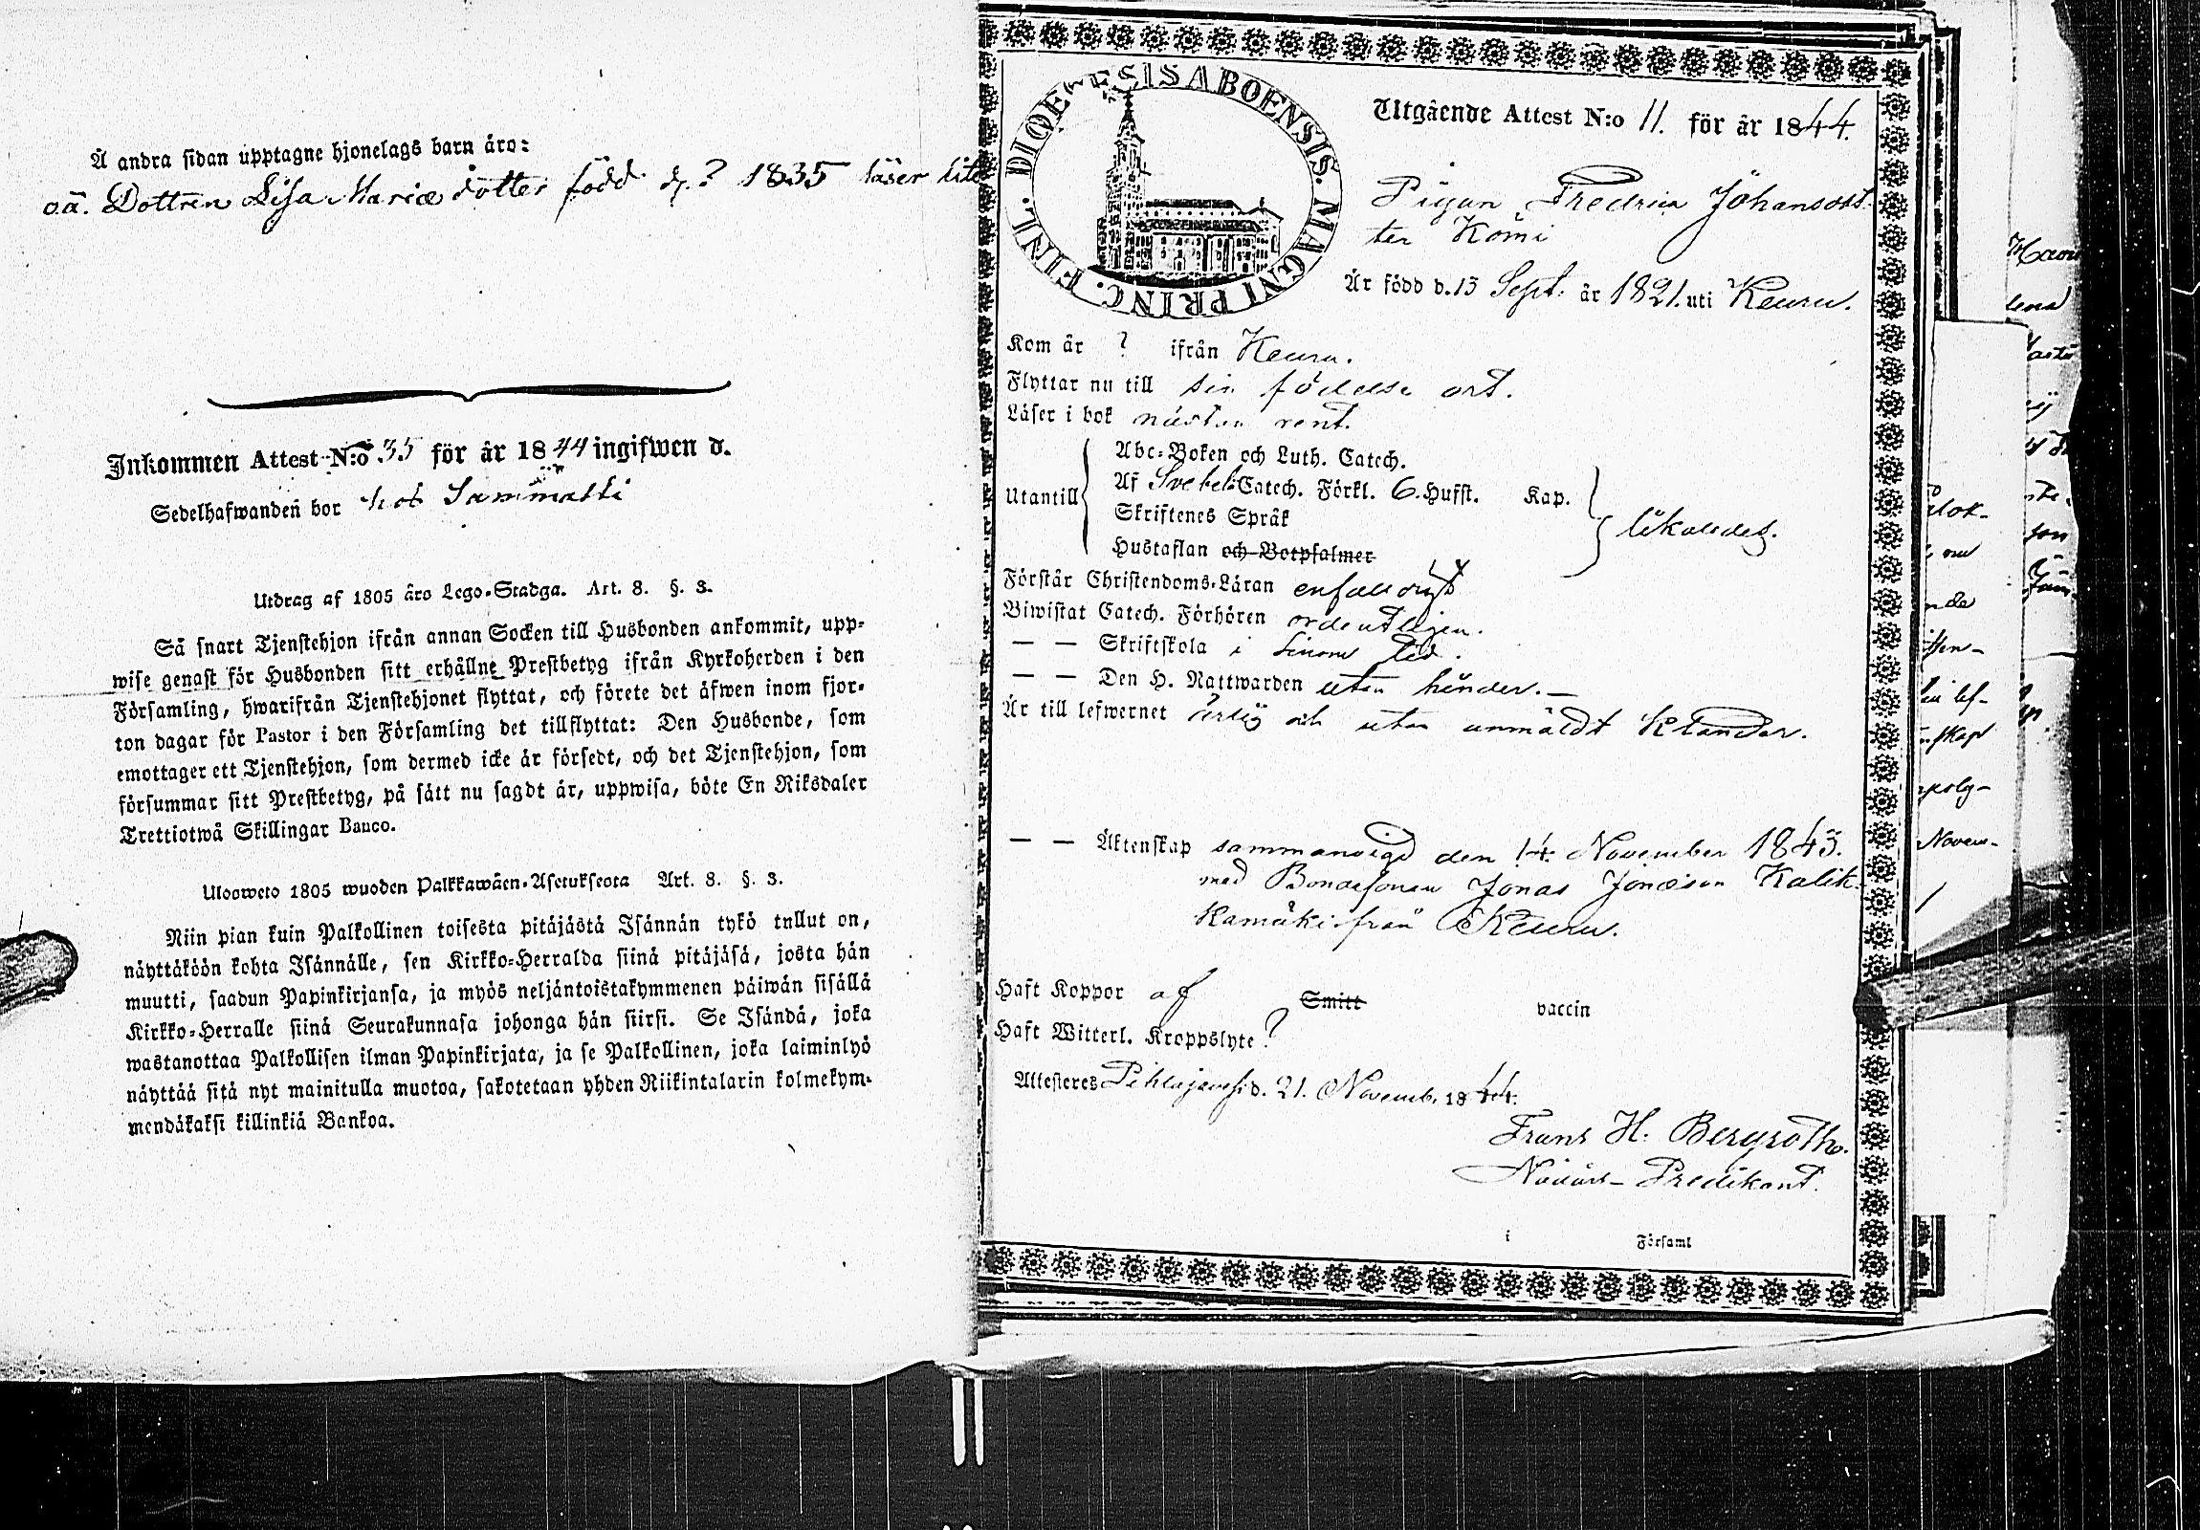 Å andra sidan upptagne hjonelags barn äro:
o.ä. Dottren Lisa Mariædotter född d. ? 1835 läser lite
Inkommen Attest N:o 35 för år 1844 ingifwen d.
Sedelhafwanden bor hos Sammatti
Utdrag af 1805 års Lego-Stadga. Art. 8. §. 3.
Så snart Tjenstehjon ifrån annan Socken till Husbonden ankommit, upp-
wise genast för Husbonden sitt erhållne Prestbetyg ifrån Kyrkoherden i den
Församling, hwarifrån Tjenstehjonet flyttat, och förete det äfwen inom fjor-
ton dagar för Pastor i den Församling det tillflyttat: Den Husbonde, som
emottager ett Tjenstehjon, som dermed icke är försedt, och det Tjenstehjon, som
försummar sitt Prestbetyg, på sätt nu sagdt är, uppwisa, böte En Riksdaler
Trettiotwå Skillingar Banco.
Uloosweto 1805 wuoden Palkkawäen-Asetuksesta Art. 8. §. 3.
Niin pian kuin Palkollinen toisesta pitäjästä Isännän tykö tullut on,
näyttäköön kohta Isännälle, sen Kirkko-Herralda siinä pitäjäsä, josta hän
muutti, saadun Papinkirjansa, ja myös neljäntoistakymmenen päiwän sisällä
Kirkko-Herralle siinä Seurakunnasa johonga hän siirsi. Se Isändä, joka
wastanottaa Palkollisen ilman Papinkirjata, ja se Palkollinen, joka laiminlyö
näyttää sitä nyt mainitulla muotoa, sakotetaan yhden Riikintalarin kolmekym-
mendäkaksi killinkiä Bankoa.
DIOECESIS ABOENSIS. MAGNI PRINC. FINL.
Utgående Attest N:o 11. för år 1844.
Pigan Fredrica Johansdot
ter Kömi
Är född d. 13 Sept. år 1821. uti Keuru.
Kom år ? ifrån Keuru.
Flyttar nu till sin födelse ort.
Läser i bok nästan rent.
Abc-Boken och Luth. Catech.
Utantill Af Svebeli Catech. Förkl. 6. Hufst. Kap.
Skriftenes Språk
likaledes.
Hustaflan och Botpsalmer
Förstår Christendoms-Läran enfalldigt
Biwistat Catech. Förhören ordentligen.
— — Skriftskola i sinom tid.
— — Den H. Nattwarden utan hinder. —
Är till lefwernet ärlig och utan anmäldt klander.
— — Äktenskap sammanvigd den 14 November 1843.
med Bondesonen Jonas Jonæson Kalik-
kamäki från Keuru.
Haft Koppor af Smitt vaccin
Haft Witterl. Kroppslyte ?
Attesteres Pihlajavesi d. 21. Novemb. 1844.
Frans H. Bergroth.
Nådårs-Predikant.
i Församl